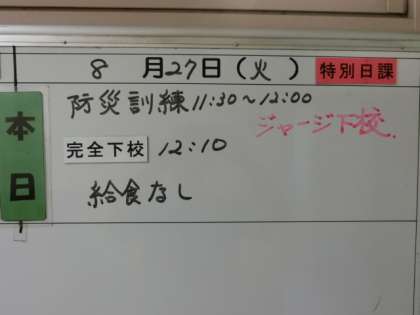 8月27日(火) 特別日課
本日
防災訓練11:30～12:00
ジャージ下校.
完全下校 12:10
給食なし